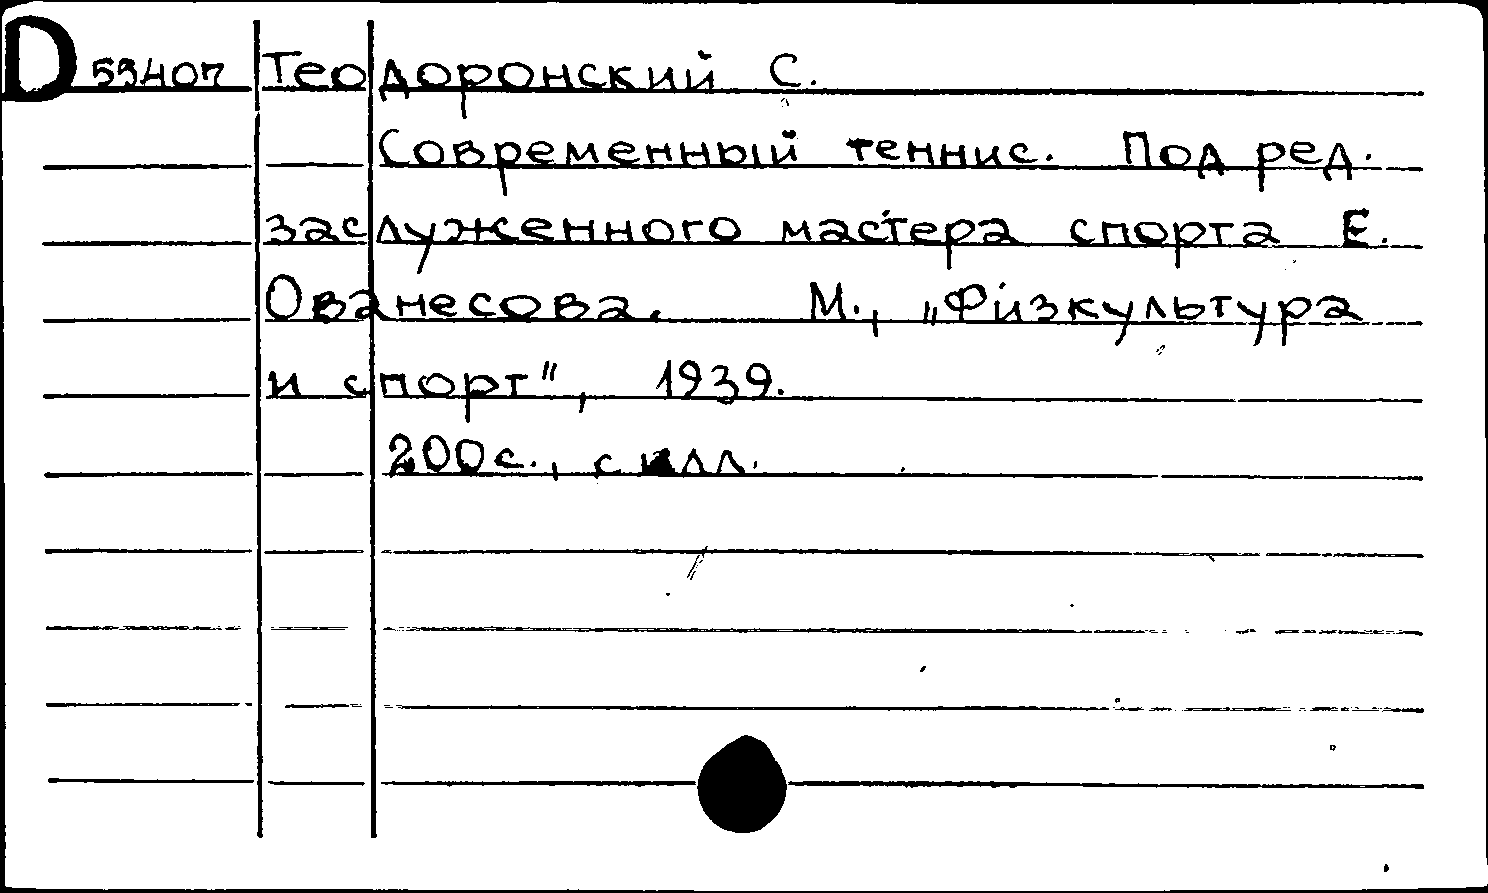 D 59407 Теодоронский С.
Современный теннис. Под ред.
заслуженного мастера спорта Е.
Ованесова. М., „Физкультура
и спорт", 1939.
200с., с илл.